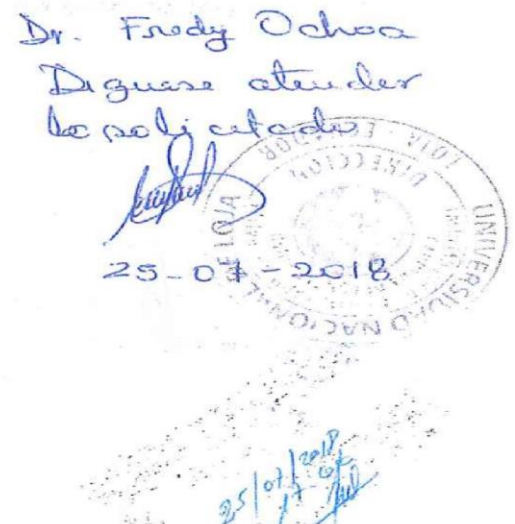 Dr. Fredy Ochoa
Dignese atender
lo solicitado
25-07-2018
UNIVERSIDAD NACIONAL DE LOJA
DIRECCION
LOJA - ECUADOR
25/07/2018